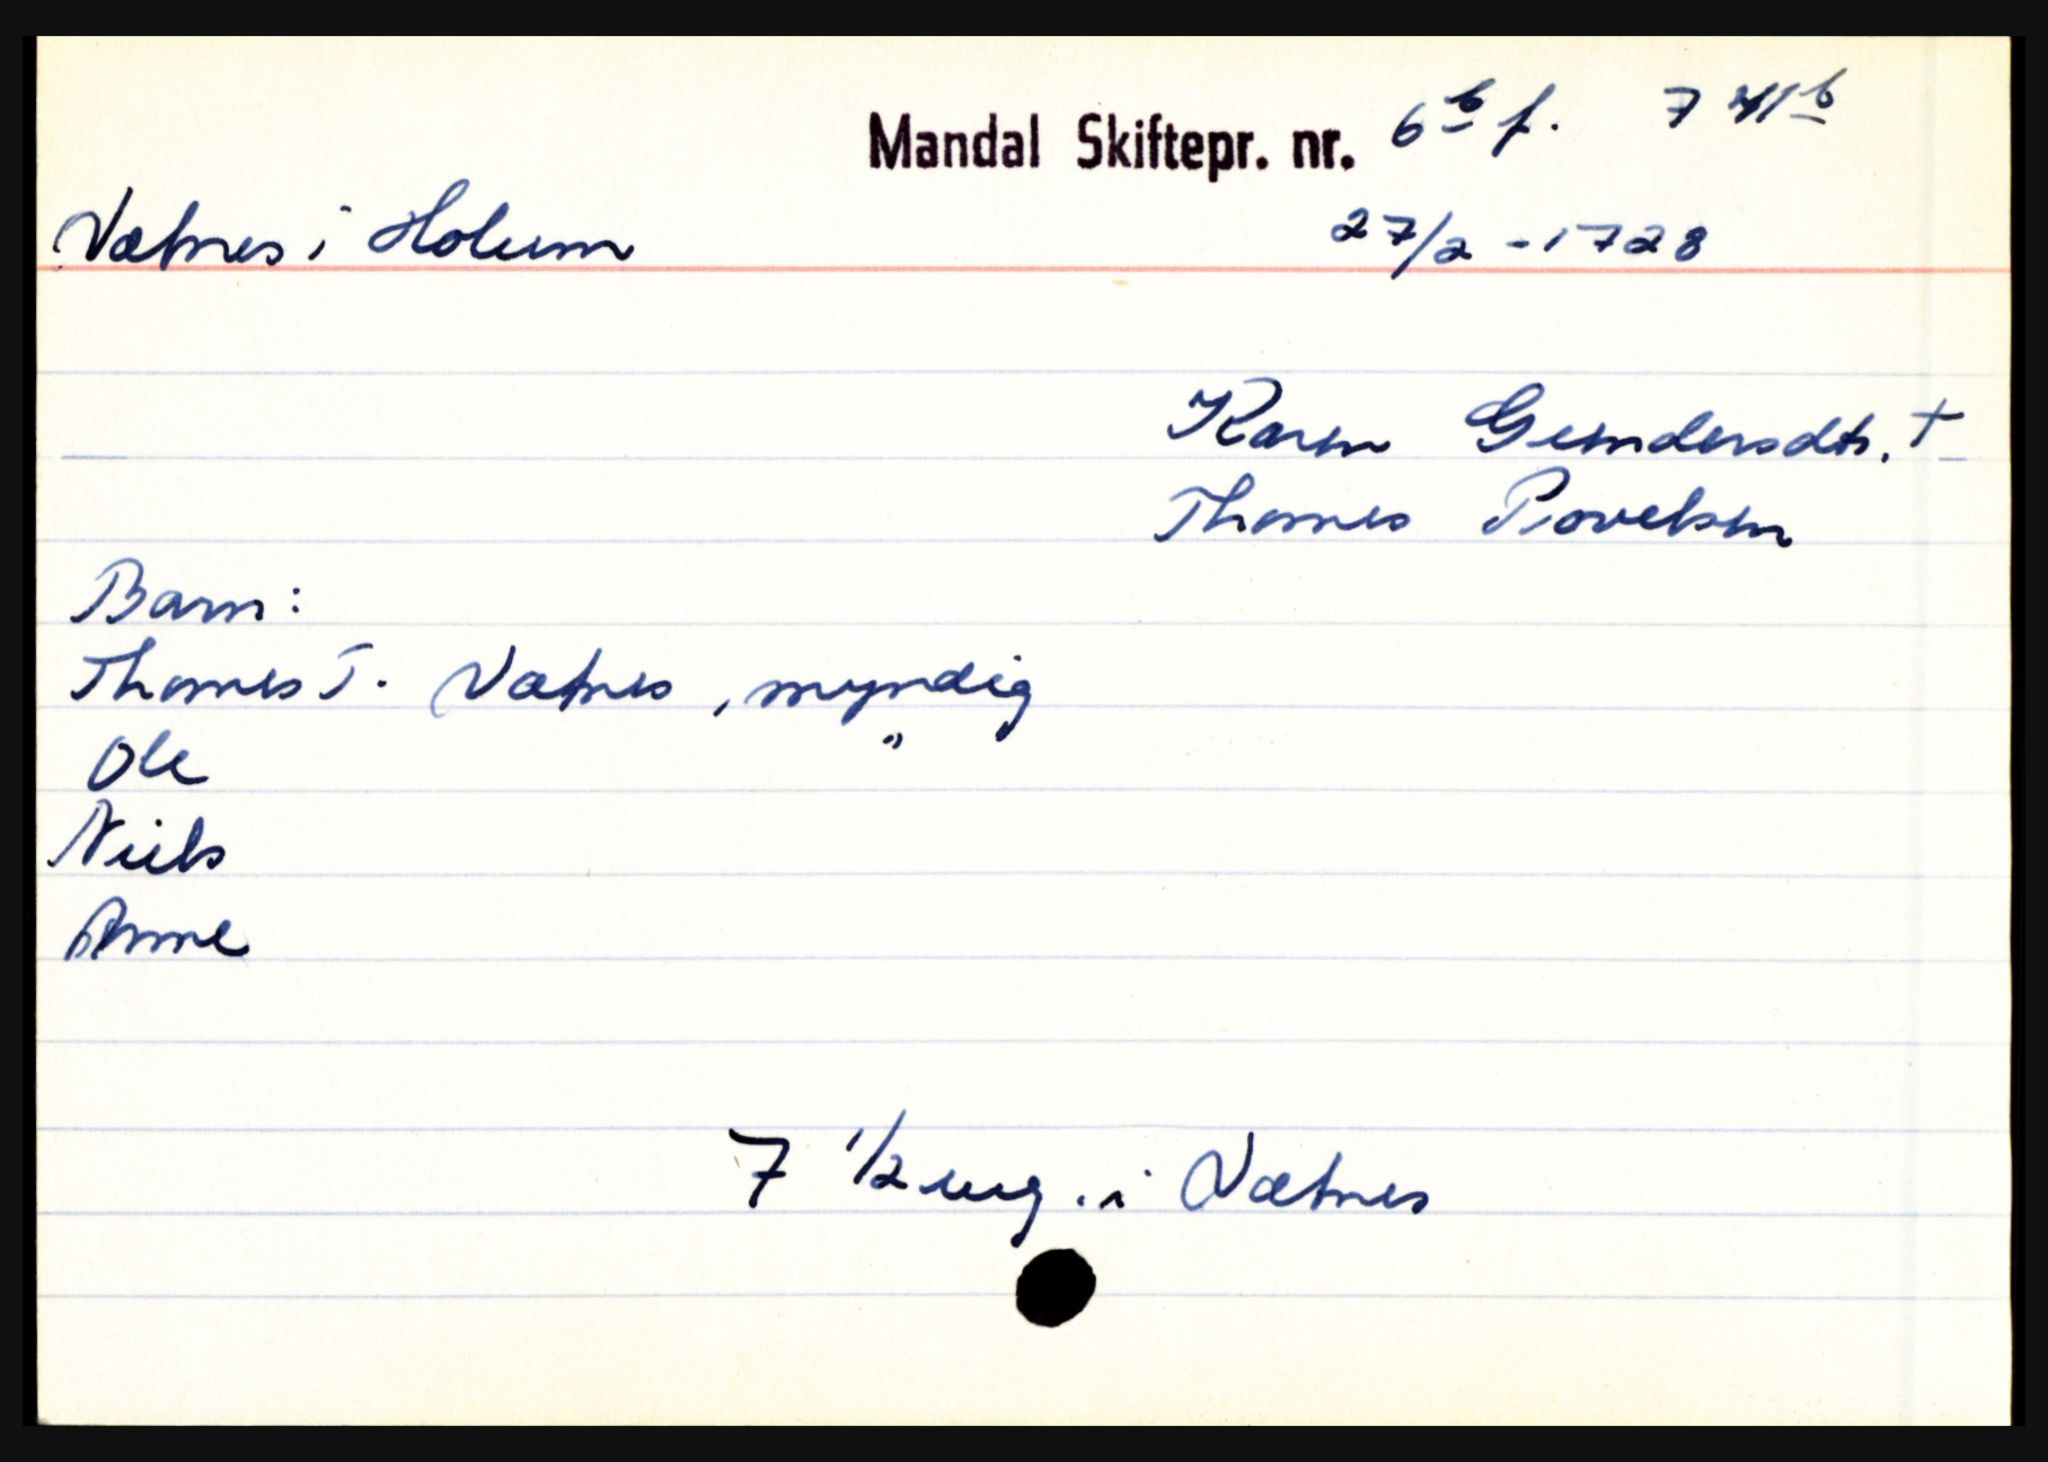 Mandal Skiftepr. nr. 6 b f. 7 41 b
Vatnes i Holum 27/2 - 1728
Karen Gundersdtr. +
Thomes Povelsen
Barn:
Thomes T. Vatnes, myndig
Ole "
Niels
Anne
7 1/2 eng. i Vatnes